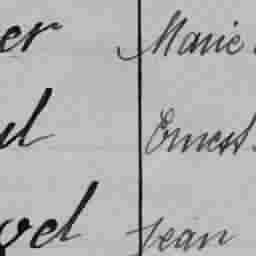 er Marie
ul Ernest.
vel Jean